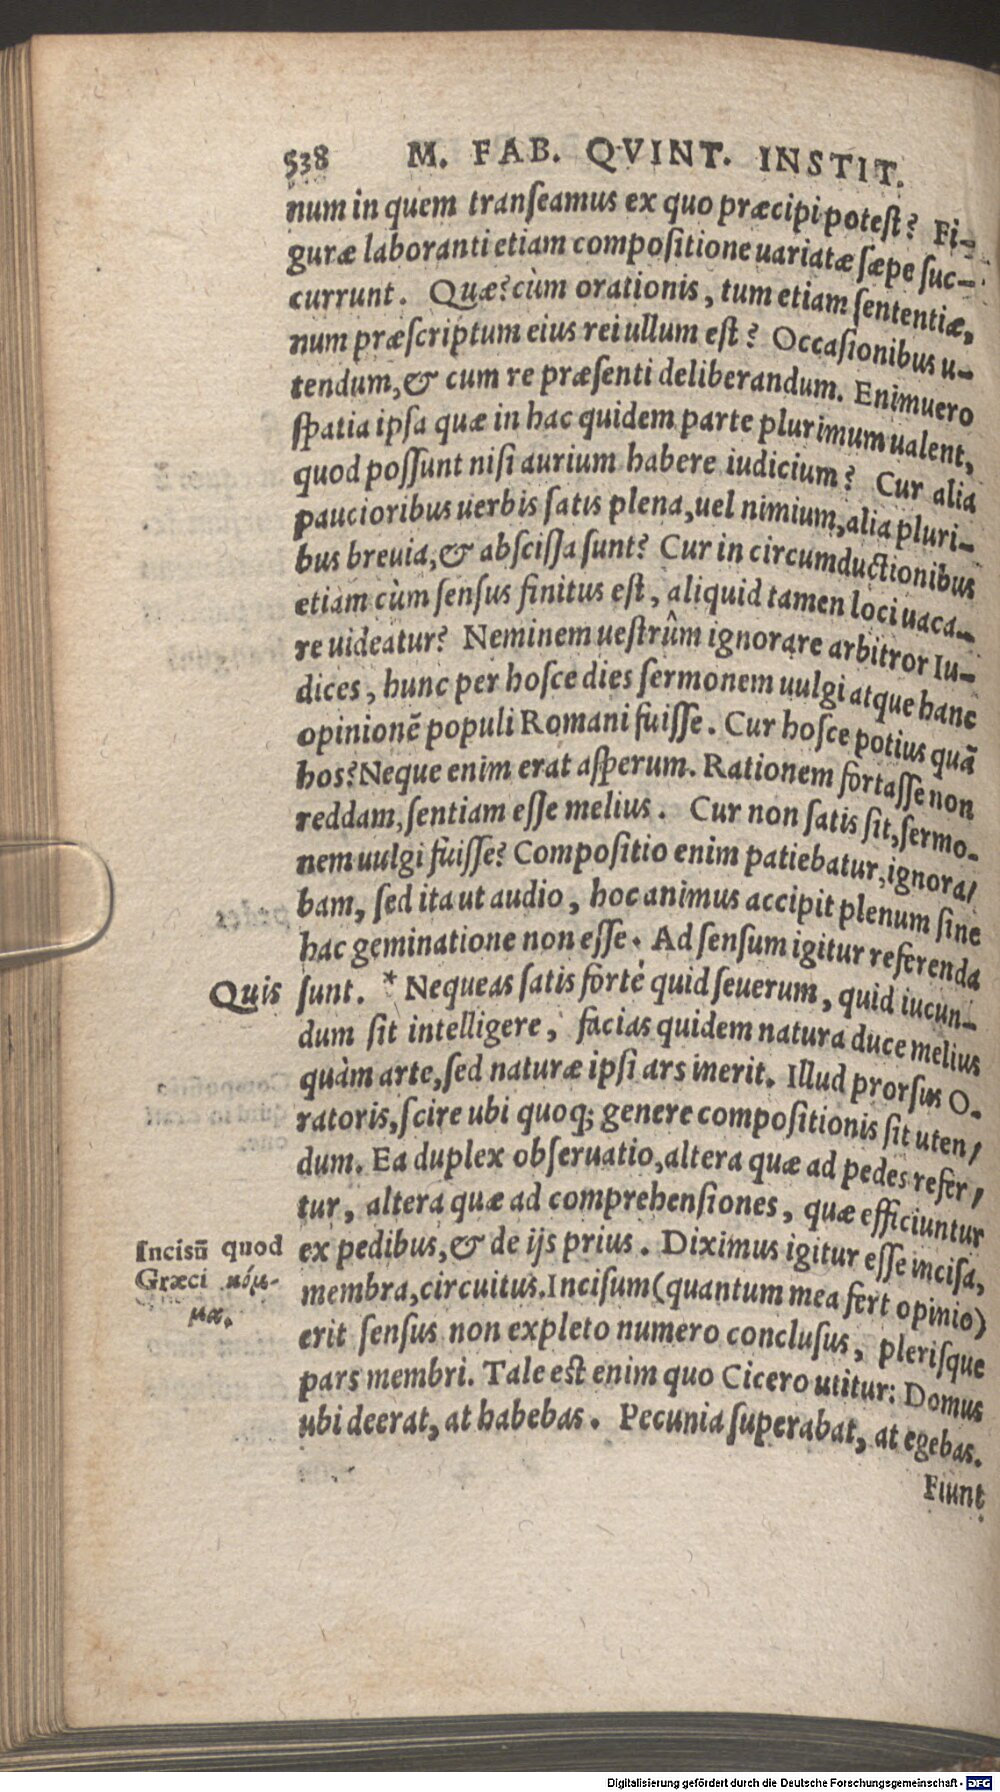 538 M. FAB. QVINT. INSTIT.
num in quem transeamus ex quo præcipi potest? Fi-
guræ laboranti etiam compositione uariatæ sæpe suc-
currunt. Quæ? cùm orationis, tum etiam sententiæ,
num præscriptum eius rei ullum est? Occasionibus u-
tendum, & cum re præsenti deliberandum. Enimuero
spatia ipsa quæ in hac quidem parte plurimum ualent,
quod possunt nisi aurium habere iudicium? Cur alia
paucioribus uerbis satis plena, uel nimium, alia pluri-
bus breuia, & abscissa sunt? Cur in circumductionibus
etiam cùm sensus finitus est, aliquid tamen loci uaca-
re uideatur? Neminem uestrûm ignorare arbitror Iu-
dices, hunc per hosce dies sermonem uulgi atque hanc
opinionē populi Romani fuisse. Cur hosce potius quā
hos? Neque enim erat asperum. Rationem fortasse non
reddam, sentiam esse melius. Cur non satis sit, sermo-
nem uulgi fuisse? Compositio enim patiebatur, ignora/
bam, sed ita ut audio, hoc animus accipit plenum sine
hac geminatione non esse. Ad sensum igitur referenda
Quis sunt. * Nequeas satis fortè quid seuerum, quid iucun-
dum sit intelligere, facias quidem natura duce melius
quàm arte, sed naturæ ipsi ars inerit. Illud prorsus O-
ratoris, scire ubi quoq; genere compositionis sit uten/
dum. Ea duplex obseruatio, altera quæ ad pedes refer/
tur, altera quæ ad comprehensiones, quæ efficiuntur
Incisū quod
Græci κόμ-
μα.
ex pedibus, & de ijs prius. Diximus igitur esse incisa,
membra, circuitus. Incisum (quantum mea fert opinio)
erit sensus non expleto numero conclusus, plerisque
pars membri. Tale est enim quo Cicero utitur: Domus
ubi deerat, at habebas. Pecunia superabat, at egebas.
Fiunt
Digitalisierung gefördert durch die Deutsche Forschungsgemeinschaft - DFG